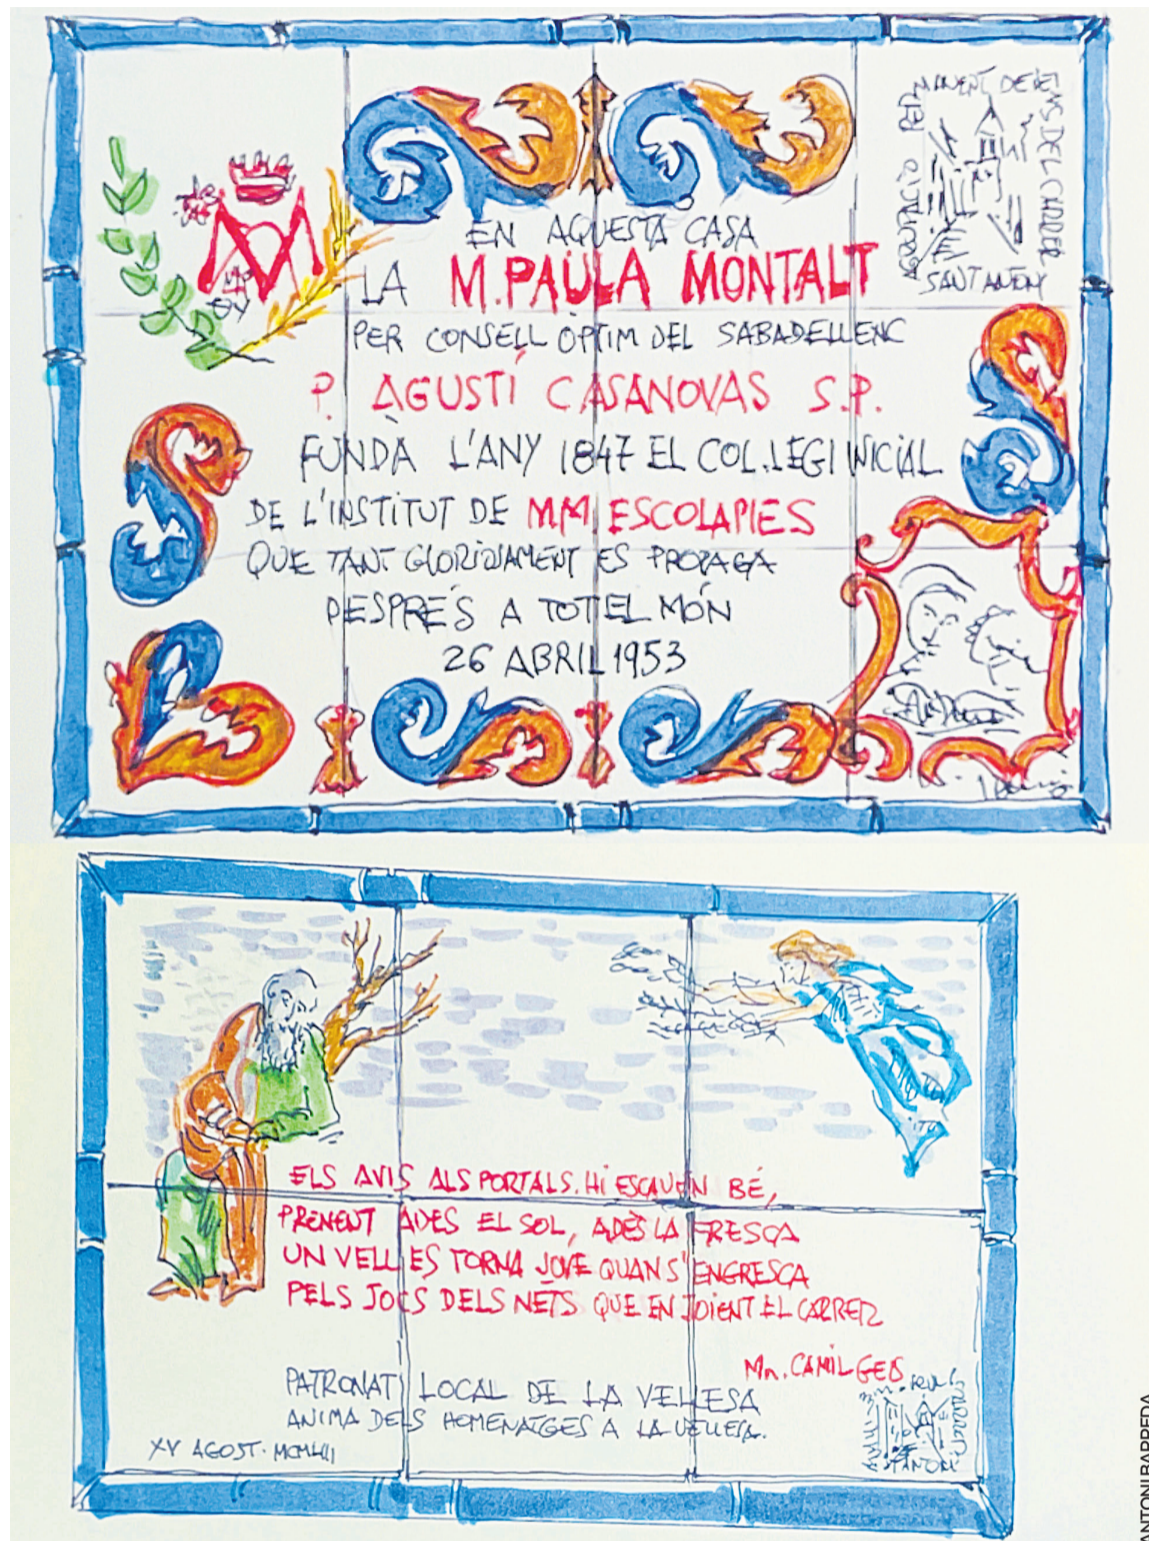 EN AQUESTA CASA
LA M. PAULA MONTALT
PER CONSELL ÒPTIM DEL SABADELLENC
P. AGUSTÍ CASANOVAS S.P.
FUNDÀ L'ANY 1847 EL COL.LEGI INICIAL
DE L'INSTITUT DE MM ESCOLAPIES
QUE TANT GLORIOSAMENT ES PROPAGA
DESPRÉS A TOT EL MÓN
26 ABRIL 1953
DEL CARRER
SANT ANTONI
ELS AVIS ALS PORTALS. HI ESCAUEN BÉ,
PRENENT ADES EL SOL, ADÈS LA FRESCA
UN VELL ES TORNA JOVE QUAN S'ENGRESCA
PELS JOCS DELS NÉTS QUE EN JOIENT EL CARRER
Mn. CAMIL GEIS
PATRONAT LOCAL DE LA VELLESA
ANIMA DELS HOMENATGES A LA VELLESA.
XV AGOST. MCMLIII
ANTONI BARREDA